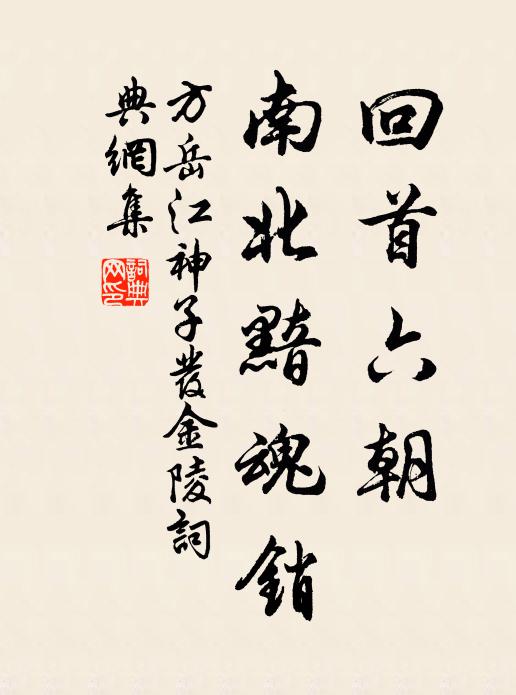 回首六朝
南北黯魂銷
方岳江神子發金陵詞
典網集
詞典
网印